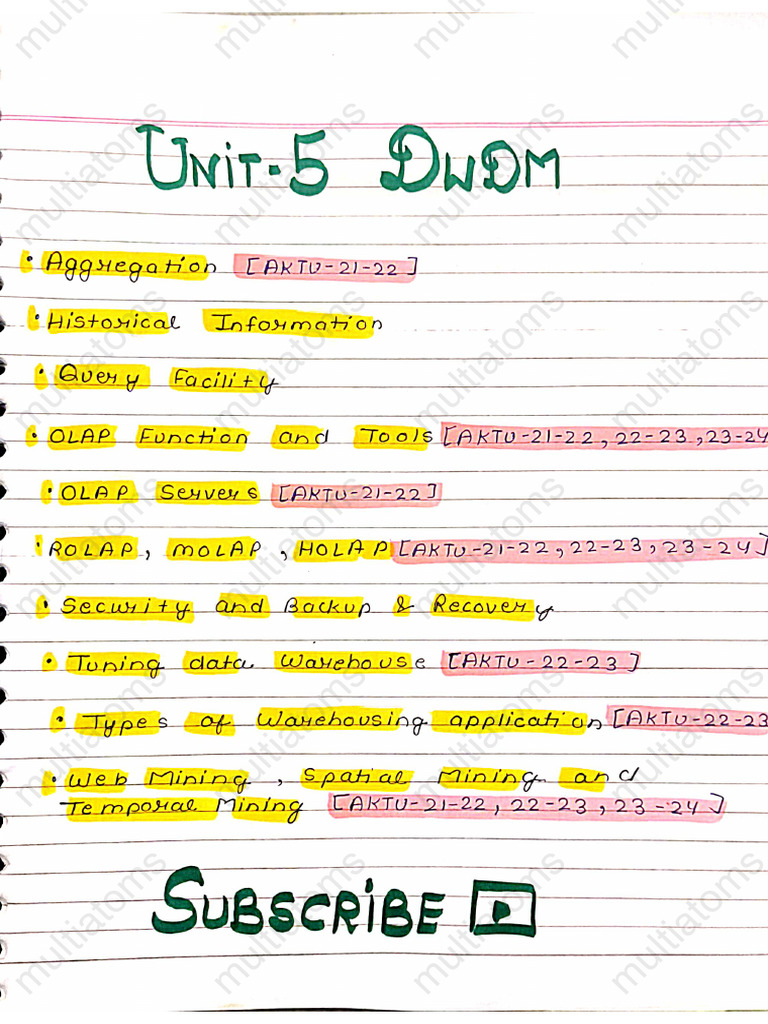 UNIT-5 DWDM
• Aggregation [AKTU-21-22]
• Historical Information
• Query Facility
• OLAP Function and Tools [AKTU-21-22, 22-23, 23-24
• OLAP Servers [AKTU-21-22]
• ROLAP, MOLAP, HOLAP [AKTU-21-22, 22-23, 23-24]
• Security and Backup & Recovery
• Tuning data Warehouse [AKTU-22-23]
• Types of Warehousing application [AKTU-22-23
• Web Mining, Spatial Mining and
Temporal Mining [AKTU-21-22, 22-23, 23-24]
SUBSCRIBE
multiatoms